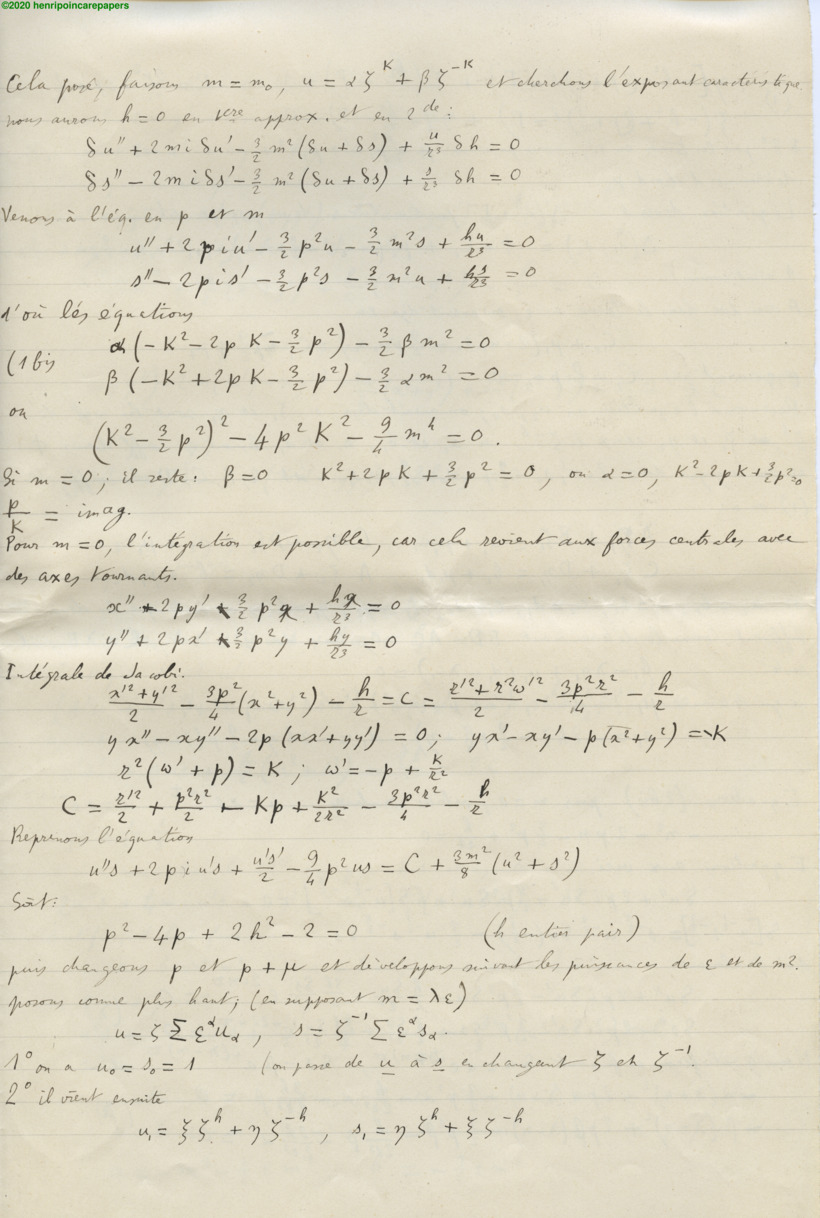 ©2020 henripoincarepapers
Cela posé, faisons m = m₀, u = αζ^K + βζ^{-K} et cherchons l'exposant caracteristique
nous aurons h = 0 en 1ere approx. et en 2de :
δu'' + 2miδu' - 3/2 m² (δu + δs) + u/r³ δh = 0
δs'' - 2miδs' - 3/2 m² (δu + δs) + s/r³ δh = 0
Venons à l'éq. en p et m
u'' + 2piu' - 3/2 p²u - 3/2 m²s + hu/r³ = 0
s'' - 2pis' - 3/2 p²s - 3/2 m²u + hs/r³ = 0
d'où les équations
α(-K² - 2pK - 3/2 p²) - 3/2 βm² = 0
(1 bis
β(-K² + 2pK - 3/2 p²) - 3/2 αm² = 0
ou
(K² - 3/2 p²)² - 4p²K² - 9/4 m⁴ = 0.
Si m = 0 ; il reste : β = 0 K² + 2pK + 3/2 p² = 0, ou α = 0, K² - 2pK + 3/2 p² = 0
p/K = imag.
Pour m = 0, l'intégration est possible, car cela revient aux forces centrales avec
des axes tournants.
x'' + 2py' + 3/2 p²x + hx/r³ = 0
y'' + 2px' + 3/2 p²y + hy/r³ = 0
Intégrale de Jacobi.
(x'² + y'²)/2 - 3p²/4 (x² + y²) - h/r = C = (r'² + r²ω'²)/2 - 3p²r²/4 - h/r
yx'' - xy'' - 2p(xx' + yy') = 0 ; yx' - xy' - p(x² + y²) = -K
r²(ω' + p) = K ; ω' = -p + K/r²
C = r'²/2 + p²r²/2 - Kp + K²/2r² - 3p²r²/4 - h/r
Reprenons l'équation
u''s + 2piu's + u's'/2 - 9/4 p²us = C + 3m²/8 (u² + s²)
Soit :
p² - 4p + 2h² - 2 = 0 (h entier pair)
puis changeons p et p + μ et développons suivant les puissances de ε et de m².
posons comme plus haut ; (en supposant m = λε)
u = ζ Σ ε^α u_α, s = ζ^{-1} Σ ε^α s_α.
1° on a u₀ = s₀ = 1 (on passe de u à s en changeant ζ en ζ^{-1}.
2° il vient ensuite
u₁ = ξζ^h + ηζ^{-h}, s₁ = ηζ^h + ξζ^{-h}